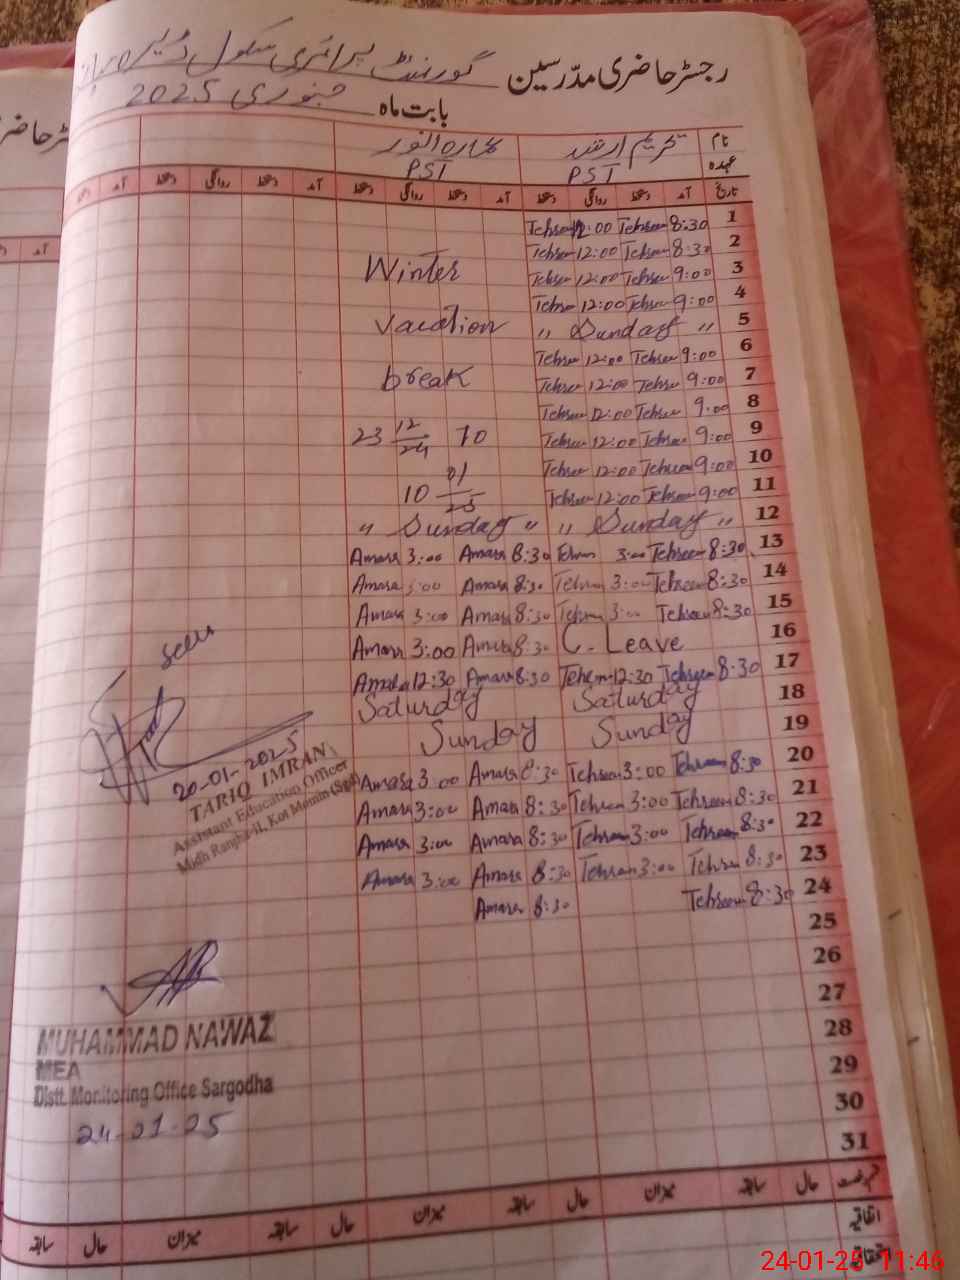 رجسٹر حاضری مدرسین گورنمنٹ پرائمری سکول
بابت ماہ جنوری 2025
نام تحریم ارشد عمارہ انور
عہدہ PST PST
تاریخ آمد دستخط روانگی دستخط آمد دستخط روانگی دستخط آمد دستخط روانگی دستخط آمد دستخط
1 8:30 Tehreem 12:00 Tehreem
2 8:30 Tehreem 12:00 Tehreem
3 9:00 Tehreem 12:00 Tehreem
4 9:00 Tehreem 12:00 Tehreem
5 " Sunday "
6 9:00 Tehreem 12:00 Tehreem
7 9:00 Tehreem 12:00 Tehreem
8 9:00 Tehreem 12:00 Tehreem
9 9:00 Tehreem 12:00 Tehreem
10 9:00 Tehreem 12:00 Tehreem
11 9:00 Tehreem 12:00 Tehreem
Winter
Vacation
break
23 12/24 To
10 01/25
12 " Sunday " " Sunday "
13 8:30 Tehreem 3:00 Tehreem 8:30 Amara 3:00 Amara
14 8:30 Tehreem 3:00 Tehreem 8:30 Amara 3:00 Amara
15 8:30 Tehreem 3:00 Tehreem 8:30 Amara 3:00 Amara
16 C. Leave 8:30 Amara 3:00 Amara
17 8:30 Tehreem 12:30 Tehreem 8:30 Amara 12:30 Amara
18 Saturday Saturday
19 Sunday Sunday
20 8:30 Tehreem 3:00 Tehreem 8:30 Amara 3:00 Amara
21 8:30 Tehreem 3:00 Tehreem 8:30 Amara 3:00 Amara
22 8:30 Tehreem 3:00 Tehreem 8:30 Amara 3:00 Amara
23 8:30 Tehreem 3:00 Tehreem 8:30 Amara 3:00 Amara
24 8:30 Tehreem 8:30 Amara
25
26
27
28
29
30
31
Seen
20-01-2025
TARIQ IMRAN
Assistant Education Officer
Midh Ranjha-II, Kot Momin (Sgd)
MUHAMMAD NAWAZ
MEA
Distt. Monitoring Office Sargodha
24-01-25
قسم رخصت حال سابقہ میزان حال سابقہ میزان حال سابقہ میزان حال سابقہ
اتفاقیہ
24-01-25 11:46